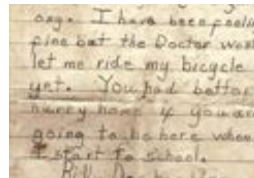 ong. I have been feeling
fine but the Doctor wont
let me ride my bicycle
yet. You had better
hurry home if you are
going to be here when
I start to school.